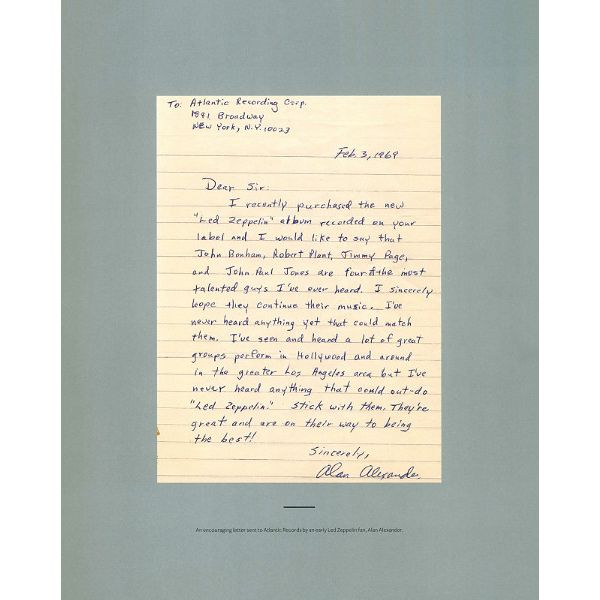 To: Atlantic Recording Corp.
1841 Broadway
New York, N.Y. 10023
Feb 3, 1969
Dear Sir:
I recently purchased the new
"Led Zeppelin" album recorded on your
label and I would like to say that
John Bonham, Robert Plant, Jimmy Page,
and John Paul Jones are four of the most
talented guys I've ever heard. I sincerely
hope they continue their music. I've
never heard anything yet that could match
them. I've seen and heard a lot of great
groups perform in Hollywood and around
in the greater Los Angeles area but I've
never heard anything that could out-do
"Led Zeppelin." Stick with them. They're
great and are on their way to being
the best!
Sincerely,
Alan Alexander
An encouraging letter sent to Atlantic Records by an early Led Zeppelin fan, Alan Alexander.